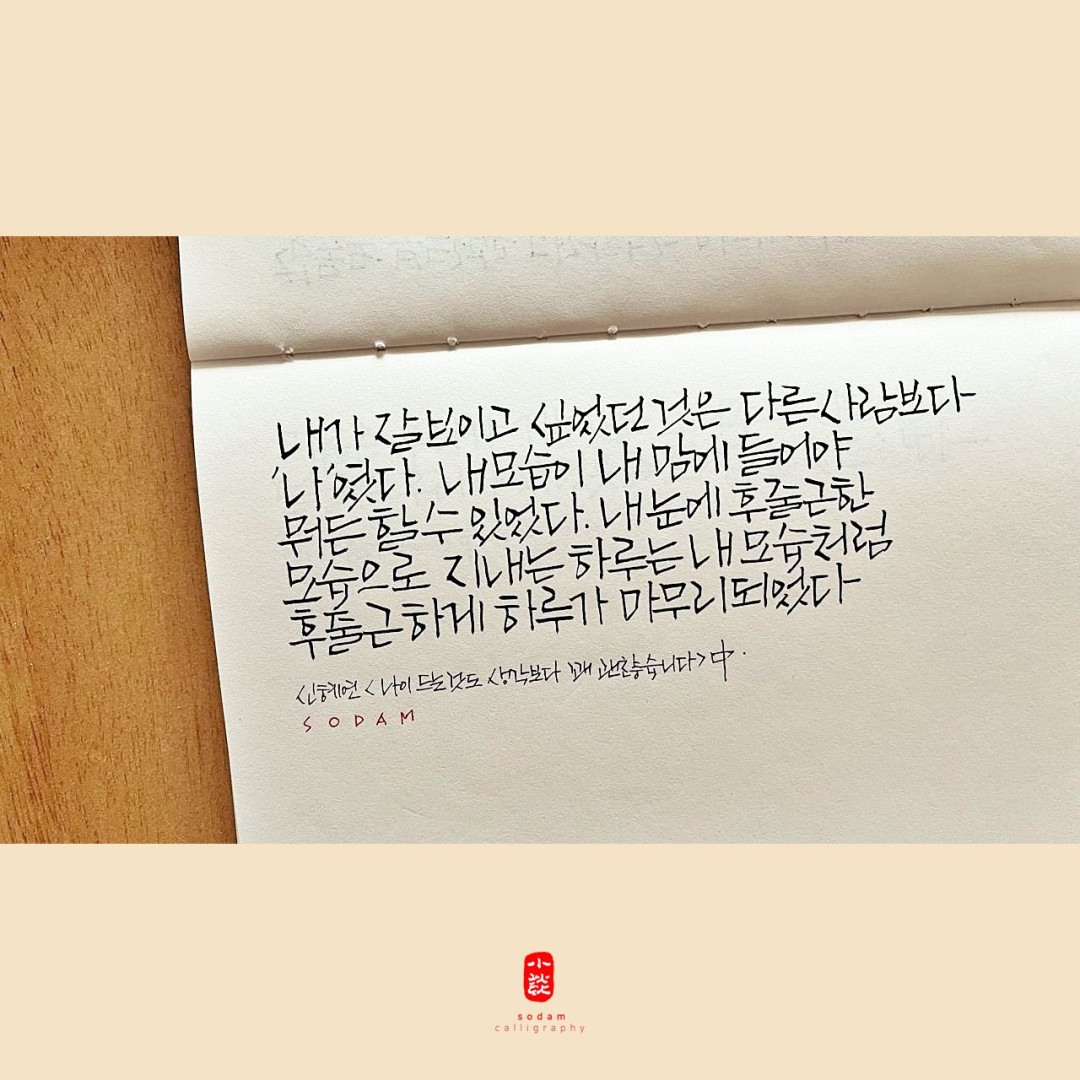 내가 잘보이고 싶었던 것은 다른사람보다
'나'였다. 내모습이 내 맘에 들어야
뭐든 할수 있었다. 내눈에 후줄근한
모습으로 지내는 하루는 내 모습처럼
후줄근하게 하루가 마무리되었다
신혜연 <나이 드는것도 생각보다 꽤 괜찮습니다> 中.
SODAM
小談
sodam
calligraphy